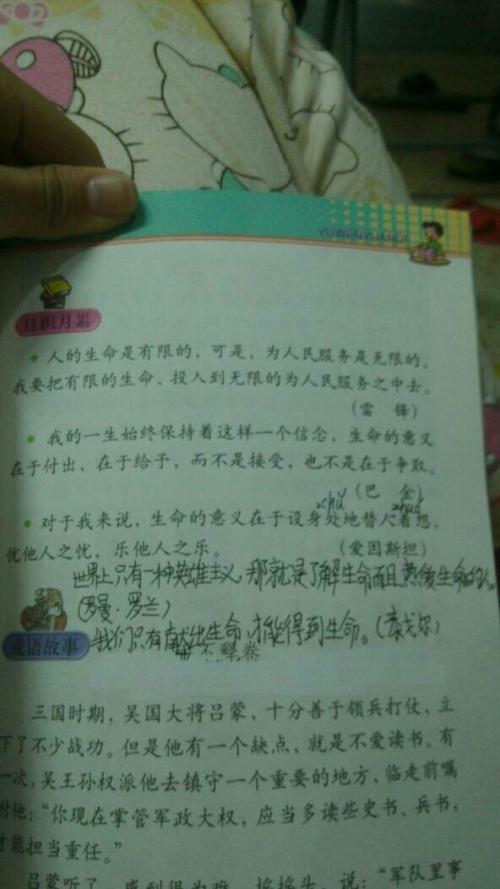 YUWENYUANDI
日积月累
• 人的生命是有限的，可是，为人民服务是无限的。
我要把有限的生命，投入到无限的为人民服务之中去。
（雷 锋）
• 我的一生始终保持着这样一个信念，生命的意义
在于付出，在于给予，而不是接受，也不是在于争取。
（巴 金）
chǔ
• 对于我来说，生命的意义在于设身处地替人着想，
忧他人之忧，乐他人之乐。 （爱因斯坦）
世界上只有一种英雄主义，那就是了解生命而且热爱生命的人。
（罗曼·罗兰）
我们只有献出生命，才能得到生命。（泰戈尔）
成语故事
手不释卷
三国时期，吴国大将吕蒙，十分善于领兵打仗，立
下了不少战功。但是他有一个缺点，就是不爱读书。有
一次，吴王孙权派他去镇守一个重要的地方，临走前嘱
咐他：“你现在掌管军政大权，应当多读些史书、兵书，
才能担当重任。”
吕蒙听了，感到很为难，挠挠头，说：“军队里事